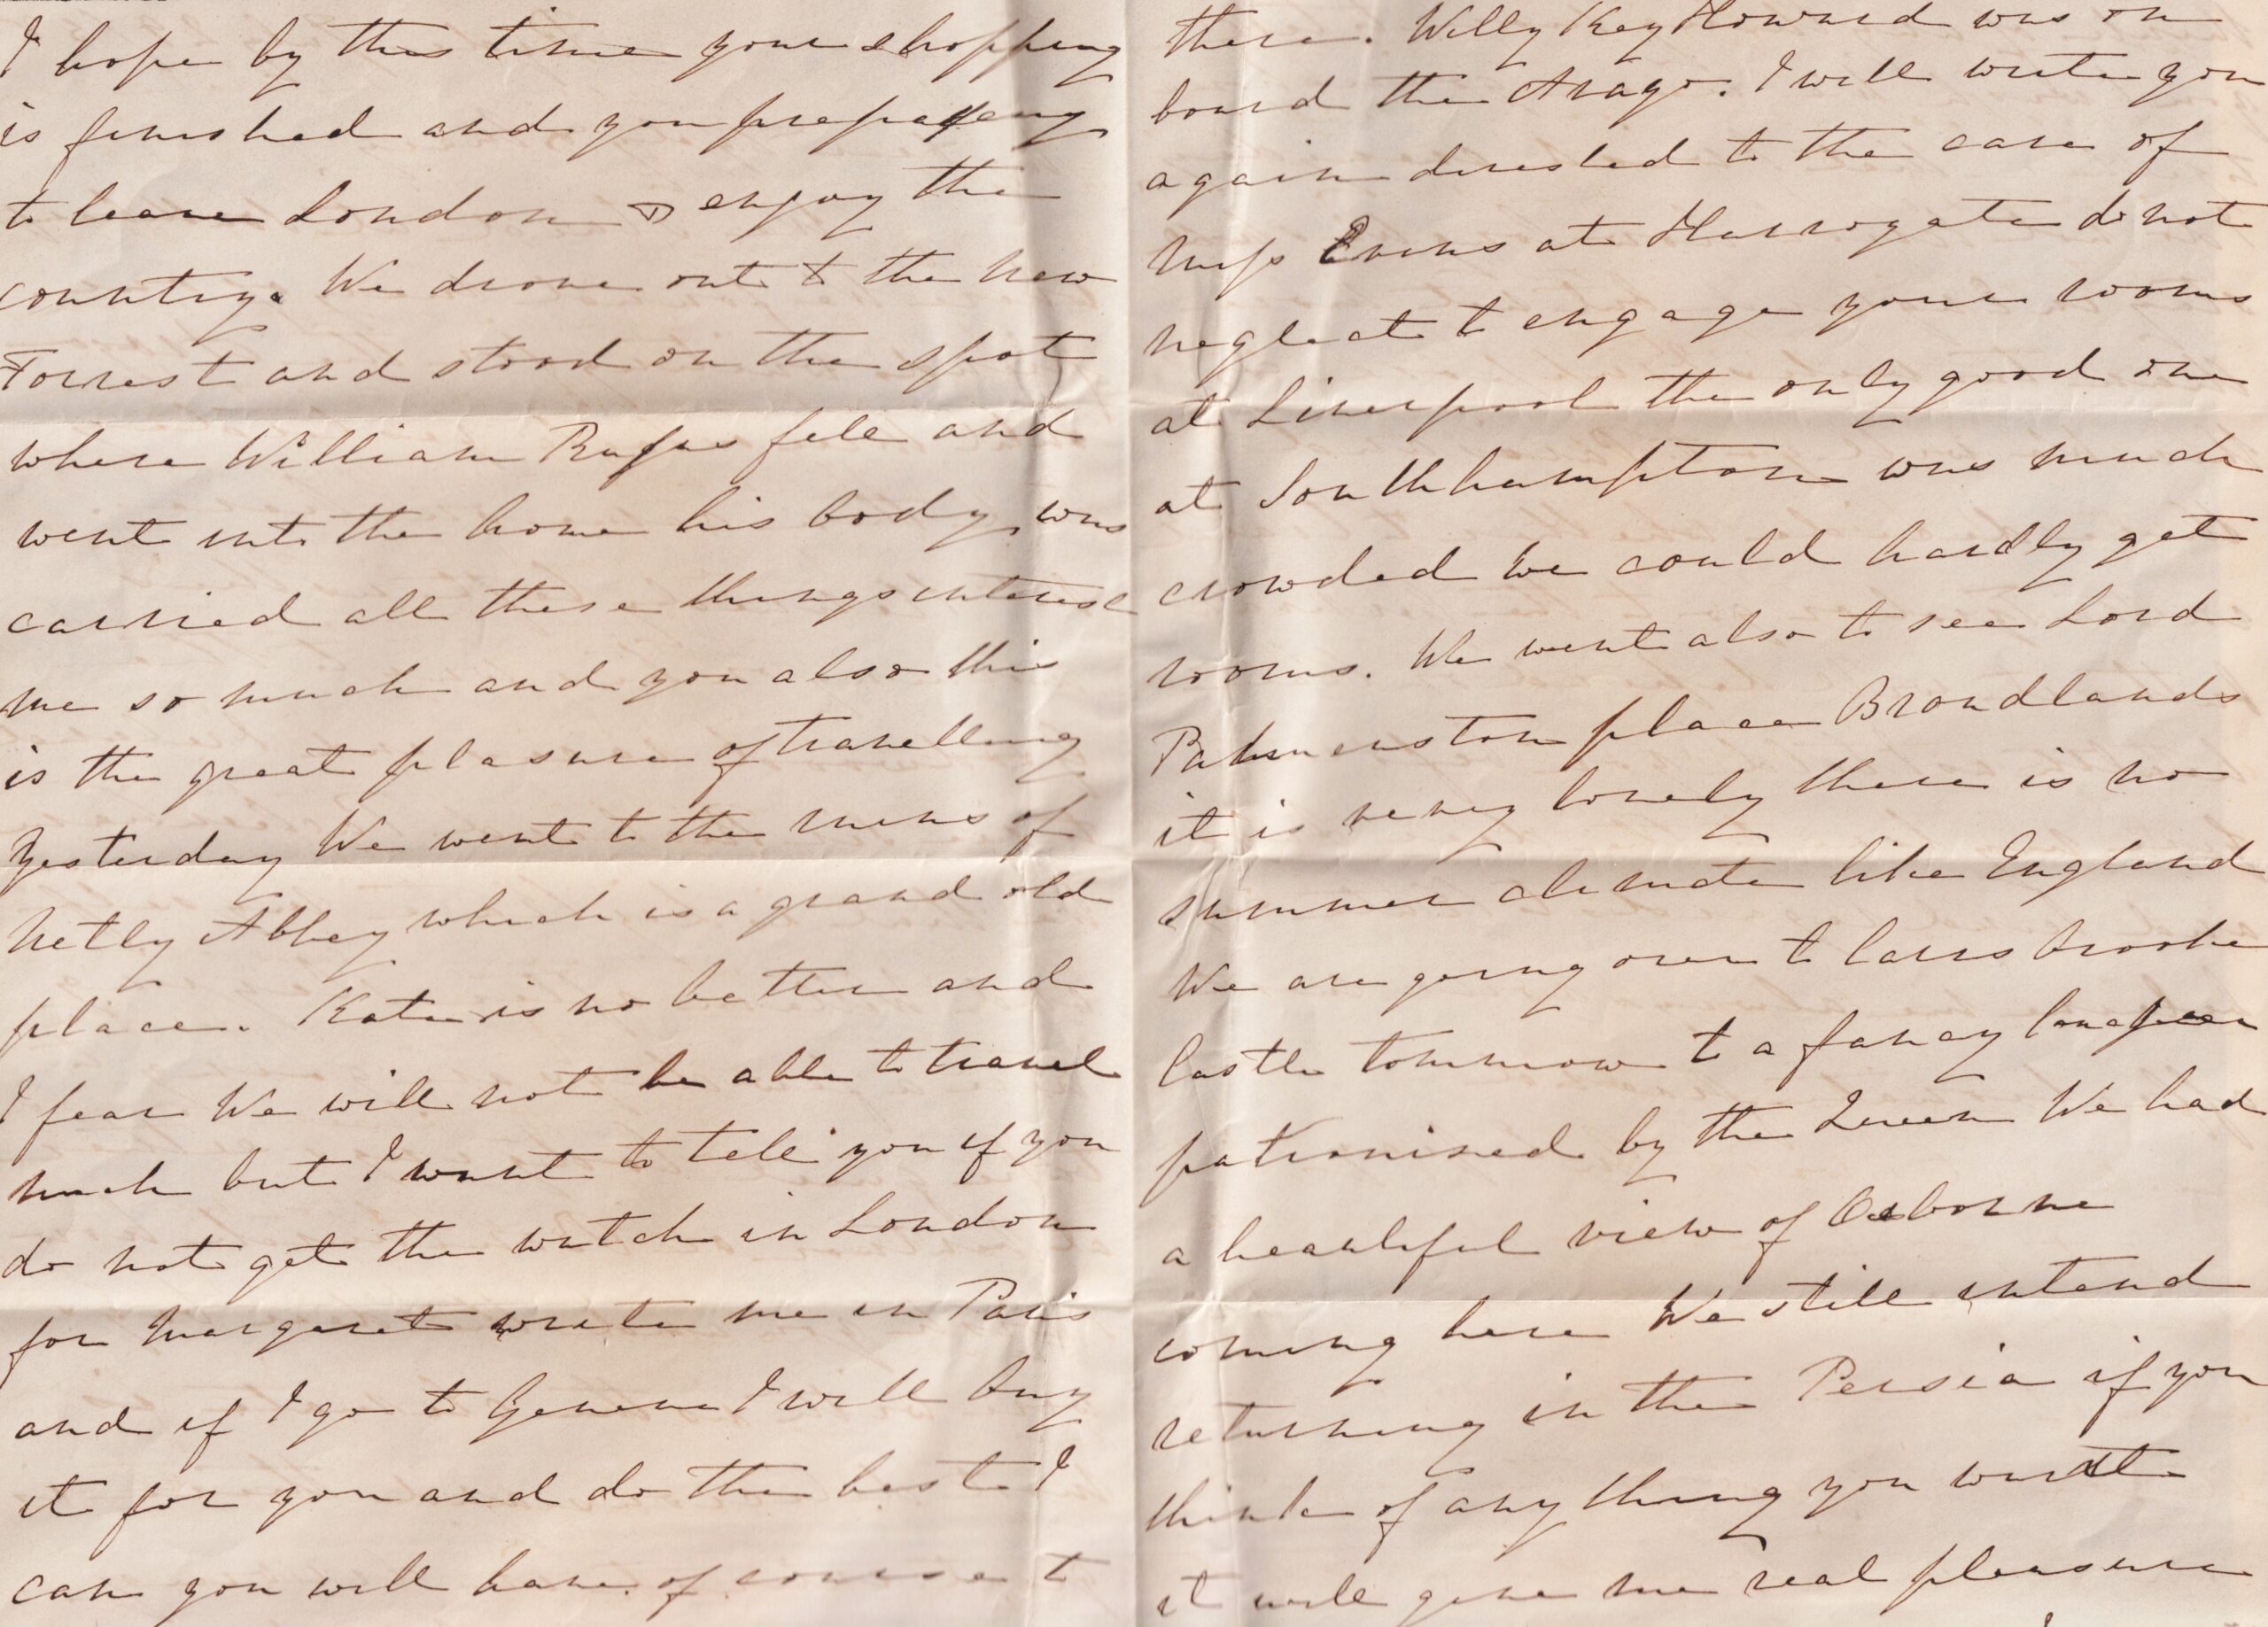 I hope by this time your shopping
is finished and you preparing
to leave London & enjoy the
country. We drove out to the New
Forrest and stood on the spot
where William Rufus fell and
went into the home his body was
carried all these things interest
me so much and you also this
is the great pleasure of travelling
Yesterday We went to the ruins of
Netly Abbey which is a grand old
place. Kate is no better and
I fear We will not be able to travel
much but I want to tell you if you
do not get the watch in London
for Margaret write me in Paris
and if I go to Geneva I will buy
it for you and do the best I
can you will have of course to
there. Willy Key Howard was on
board the Arago. I will write you
again directed to the care of
Miss Evins at Harrogate do not
neglect to engage your rooms
at Liverpool the only good one
at Southhampton was much
crowded we could hardly get
rooms. We went also to see Lord
Palmerston place Broadlands
it is very lovely there is no
summer climate like England
We are going over to Carisbrooke
Castle tommrow to a fancy
patronised by the Queen We had
a beautiful view of Osborne
coming here We still intend
returning in the Persia if you
think of any thing you want
it will give me real pleasure